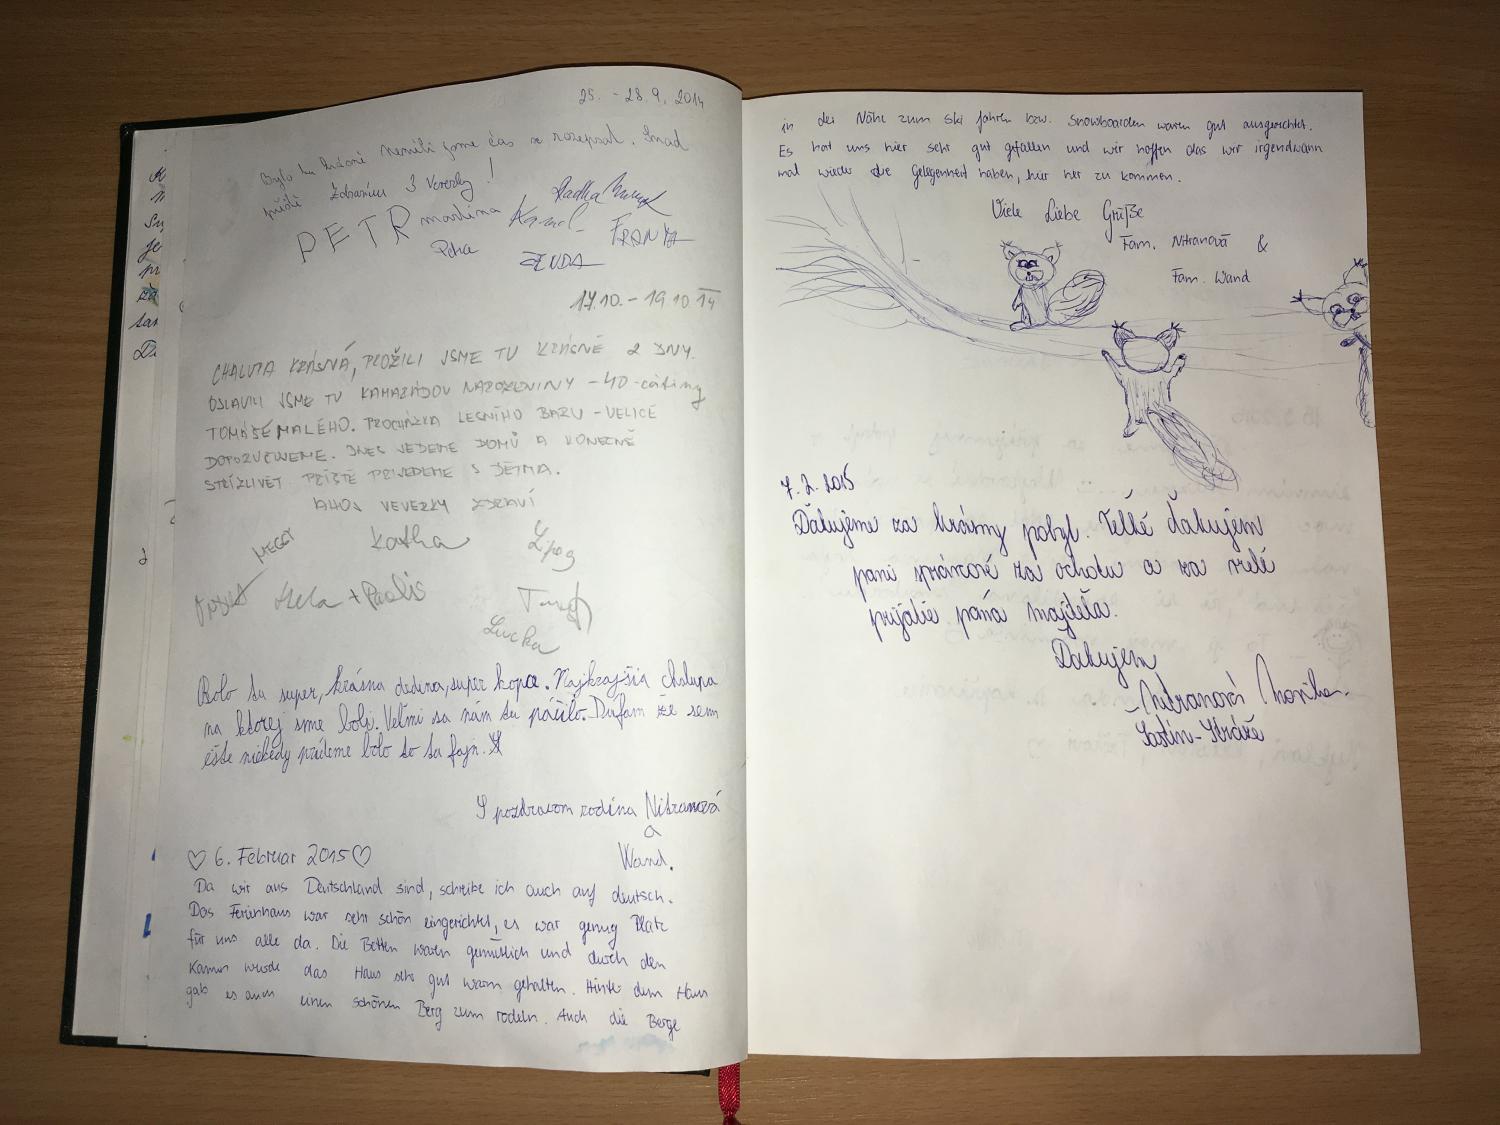 25. - 28.9. 2014
Bylo tu krásně neměli jsme čas se rozepsat. Snad
příště Zdravíme 3 Veverky!
PETR martina Karel Radka
Peťa ZENDA FRANTA
17.10. - 19.10.14
CHALUPA KRÁSNÁ, PROŽILI JSME TU KRÁSNÉ 2 DNY.
OSLAVILI JSME TU KAMARÁDOV NAROZENINY - 40-cátiny
TOMÁŠE MALÉHO. PROCHÁZKA LESNÍHO BARU - VELICE
DOPORUČUJEME. DNES JEDEME DOMŮ A KONEČNĚ
STŘÍZLIVĚT PŘÍŠTĚ PŘIJEDEME S DĚTMA.
AHOJ VEVERKY ZDRAVÍ
MEGGY Katka
Hela + Pavlis
Lucka
Bolo tu super, krásna dedina, super kopce. Najkrajšia chalupa
na ktorej sme boli. Veľmi sa nám tu páčilo. Dúfam že sem
ešte niekedy prídeme bolo to tu fajn.
S pozdravom rodina Nitranová
a
Wand.
♡ 6. Februar 2015 ♡
Da wir aus Deutschland sind, schreibe ich auch auf deutsch.
Das Ferienhaus war sehr schön eingerichtet, es war genug Platz
für uns alle da. Die Betten waren gemütlich und durch den
Kamin wurde das Haus sehr gut warm gehalten. Hinter dem Haus
gab es auch einen schönen Berg zum rodeln. Auch die Berge
in der Nähe zum Ski fahren bzw. Snowboarden waren gut ausgerichtet.
Es hat uns hier sehr gut gefallen und wir hoffen das wir irgendwann
mal wieder die Gelegenheit haben, hier her zu kommen.
Viele Liebe Grüße
Fam. Nitranová &
Fam. Wand
7.2.2015
Ďakujeme za krásny pobyt. Veľké ďakujem
pani správcové za ochotu a za milé
prijatie pána majiteľa.
Ďakujem
Nitranová Monika.
Šaštín-Stráže